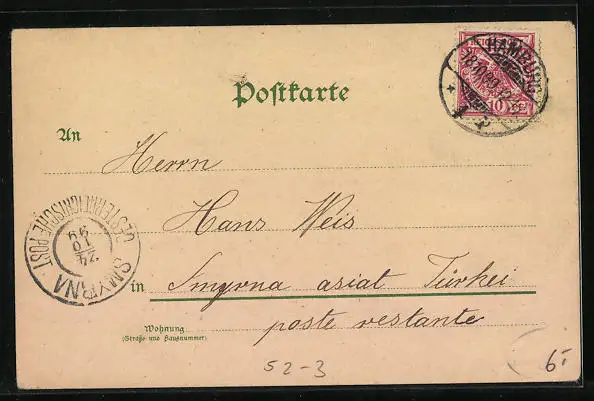 Postkarte
HAMBURG
10
An
Herrn
Hans Weis
in Smyrna asiat Türkei
poste restante
Wohnung
(Straße und Hausnummer)
OESTERREICHISCHE POST
SMYRNA
24
10
99
52-3
6.-